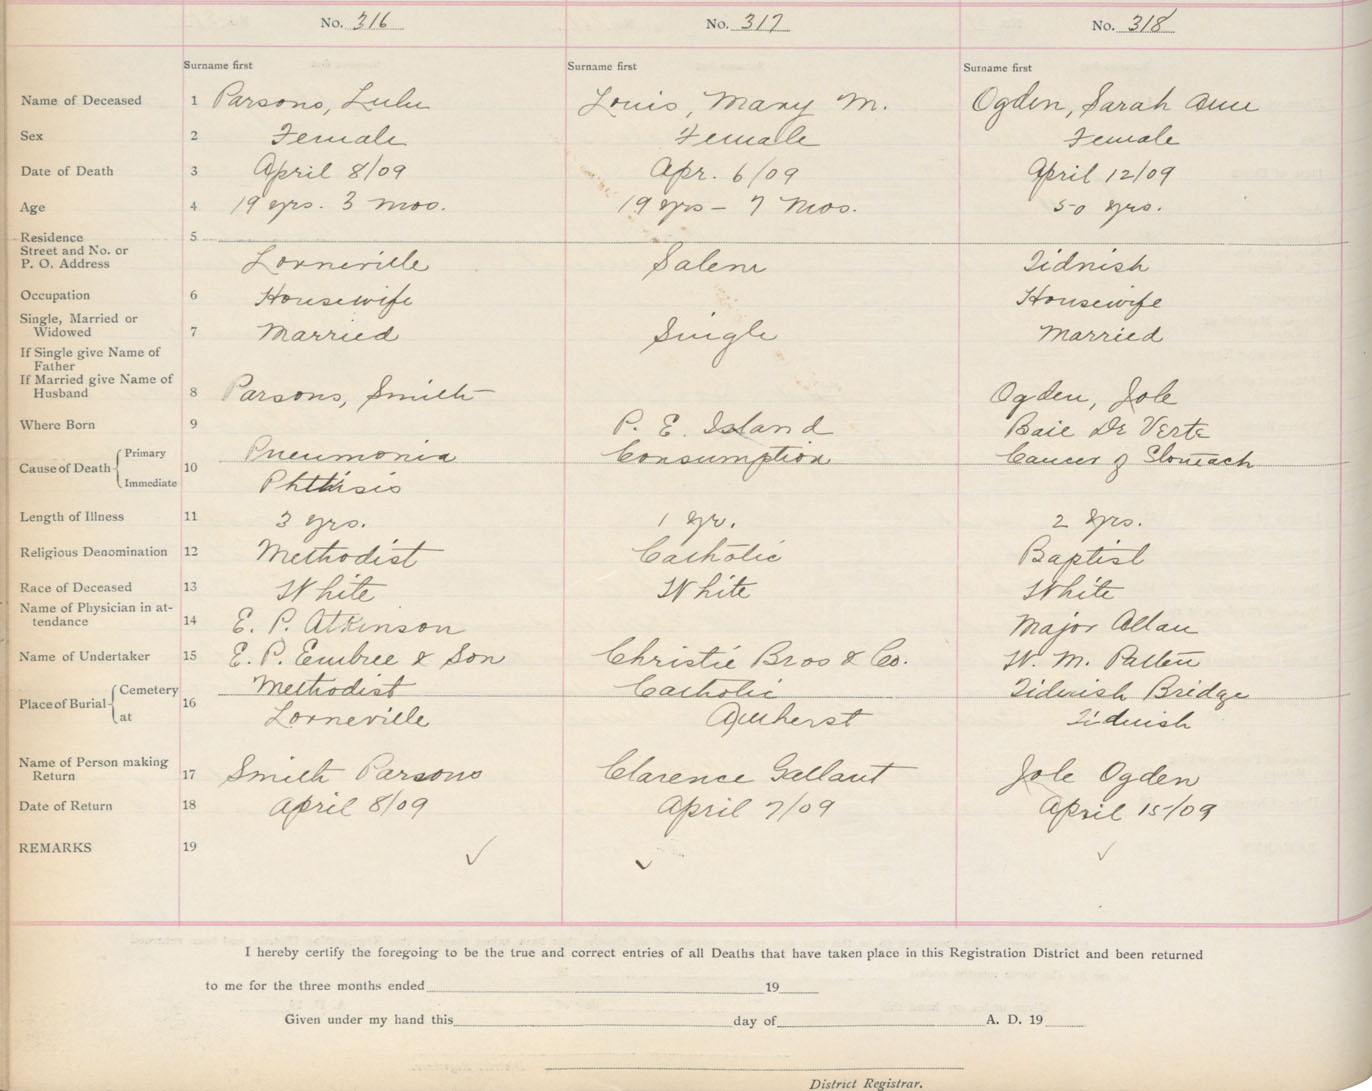 No. 316 No. 317 No. 318
Surname first Surname first Surname first
Name of Deceased 1 Parsons, Lulu Louis, Mary M. Ogden, Sarah Ann
Sex 2 Female Female Female
Date of Death 3 April 8/09 Apr. 6/09 April 12/09
Age 4 19 yrs. 3 mos. 19 yrs - 7 Mos. 50 yrs.
Residence 5
Street and No. or
P. O. Address Lorneville Salem Tidnish
Occupation 6 Housewife Housewife
Single, Married or
Widowed 7 Married Single Married
If Single give Name of
Father
If Married give Name of
Husband 8 Parsons, Smith Ogden, Jole
Where Born 9 P. E. Island Baie De Verte
Primary
Cause of Death 10 Pneumonia Consumption Cancer of Stomach
Immediate Phthisis
Length of Illness 11 3 yrs. 1 yr. 2 yrs.
Religious Denomination 12 Methodist Catholic Baptist
Race of Deceased 13 White White White
Name of Physician in at-
tendance 14 E. P. Atkinson Major Allan
Name of Undertaker 15 E. P. Embree & Son Christie Bros & Co. W. M. Patten
Cemetery Methodist Catholic Tidnish Bridge
Place of Burial 16
at Lorneville Amherst Tidnish
Name of Person making
Return 17 Smith Parsons Clarence Gallant Jole Ogden
Date of Return 18 April 8/09 April 7/09 April 15/09
REMARKS 19 ✓ ✓ ✓
I hereby certify the foregoing to be the true and correct entries of all Deaths that have taken place in this Registration District and been returned
to me for the three months ended 19
Given under my hand this day of A. D. 19
District Registrar.